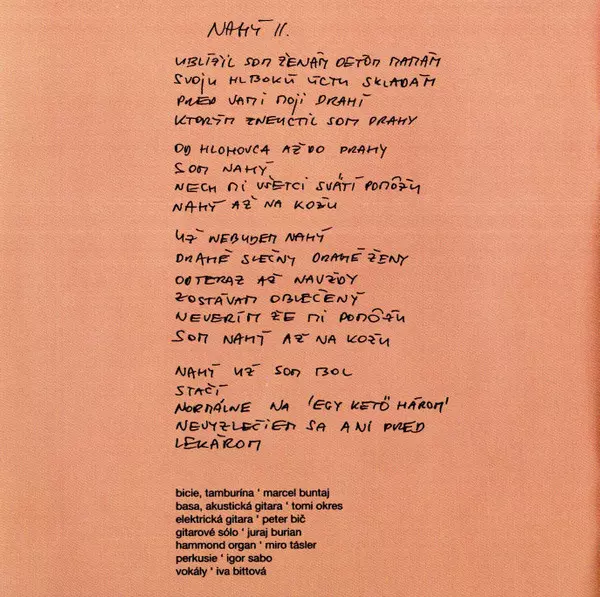 NAHÝ II.
UBLÍŽIL SOM ŽENÁM DEŤOM MAMÁM
SVOJU HLBOKÚ ÚCTU SKLADÁM
PRED VAMI MOJI DRAHÍ
KTORÝM ZNEUCTIL SOM DRAHY
OD HLOHOVCA AŽ DO PRAHY
SOM NAHÝ
NECH MI VŠETCI SVÄTÍ POMÔŽU
NAHÝ AŽ NA KOŽU
UŽ NEBUDEM NAHÝ
DRAHÉ SLEČNY DRAHÉ ŽENY
ODTERAZ AŽ NAVŽDY
ZOSTÁVAM OBLEČENÝ
NEVERÍM ŽE MI POMÔŽU
SOM NAHÝ AŽ NA KOŽU
NAHÝ UŽ SOM BOL
STAČÍ
NORMÁLNE NA 'EGY KETŐ HÁROM'
NEVYZLEČIEM SA ANI PRED
LEKÁROM
bicie, tamburína ‘ marcel buntaj
basa, akustická gitara ‘ tomi okres
elektrická gitara ‘ peter bič
gitarové sólo ‘ juraj burian
hammond organ ‘ miro tásler
perkusie ‘ igor sabo
vokály ‘ iva bittová